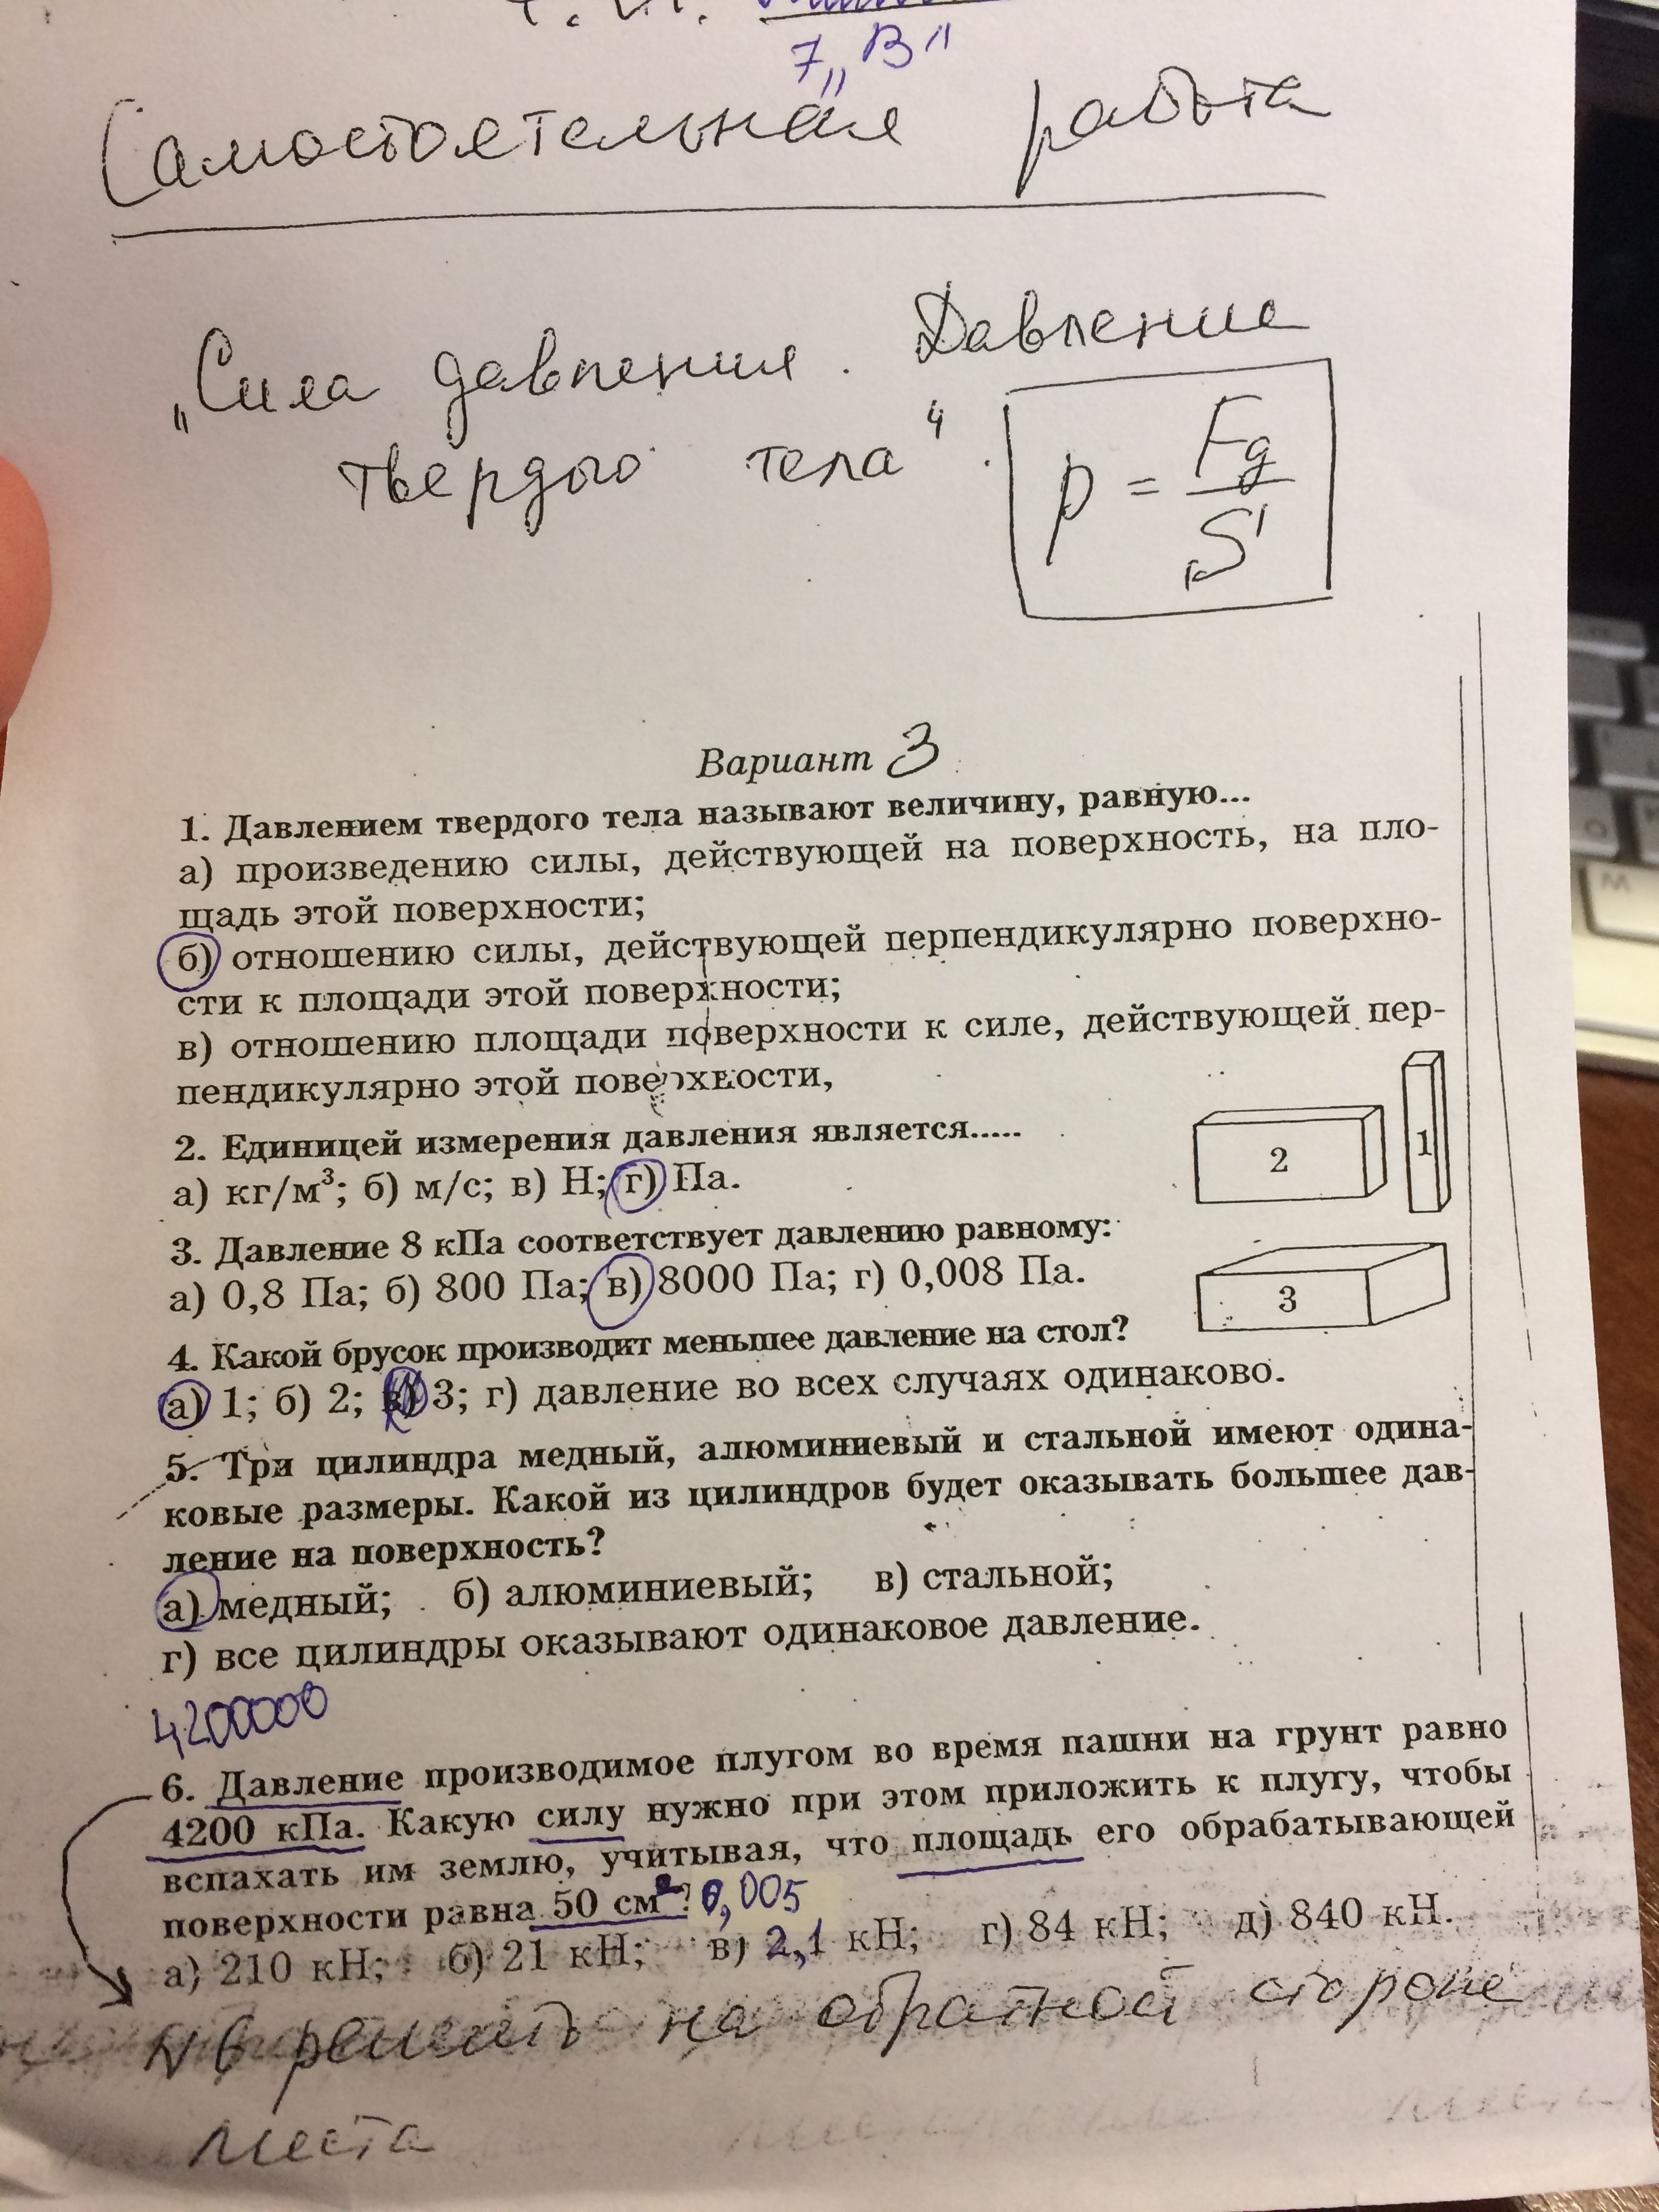 7 „В"
Самостоятельная работа
„Сила давления. Давление
твердого тела".
p = Fg / S
Вариант 3
1. Давлением твердого тела называют величину, равную...
а) произведению силы, действующей на поверхность, на пло-
щадь этой поверхности;
б) отношению силы, действующей перпендикулярно поверхно-
сти к площади этой поверхности;
в) отношению площади поверхности к силе, действующей пер-
пендикулярно этой поверхности,
2. Единицей измерения давления является.....
а) кг/м³; б) м/с; в) Н; г) Па.
2
1
3. Давление 8 кПа соответствует давлению равному:
а) 0,8 Па; б) 800 Па; в) 8000 Па; г) 0,008 Па.
3
4. Какой брусок производит меньшее давление на стол?
а) 1; б) 2; в) 3; г) давление во всех случаях одинаково.
5. Три цилиндра медный, алюминиевый и стальной имеют одина-
ковые размеры. Какой из цилиндров будет оказывать большее дав-
ление на поверхность?
а) медный; б) алюминиевый; в) стальной;
г) все цилиндры оказывают одинаковое давление.
4200000
6. Давление производимое плугом во время пашни на грунт равно
4200 кПа. Какую силу нужно при этом приложить к плугу, чтобы
вспахать им землю, учитывая, что площадь его обрабатывающей
поверхности равна 50 см²? 0,005
а) 210 кН; б) 21 кН; в) 2,1 кН; г) 84 кН; д) 840 кН.
N 6 решить на обратной стороне
листа